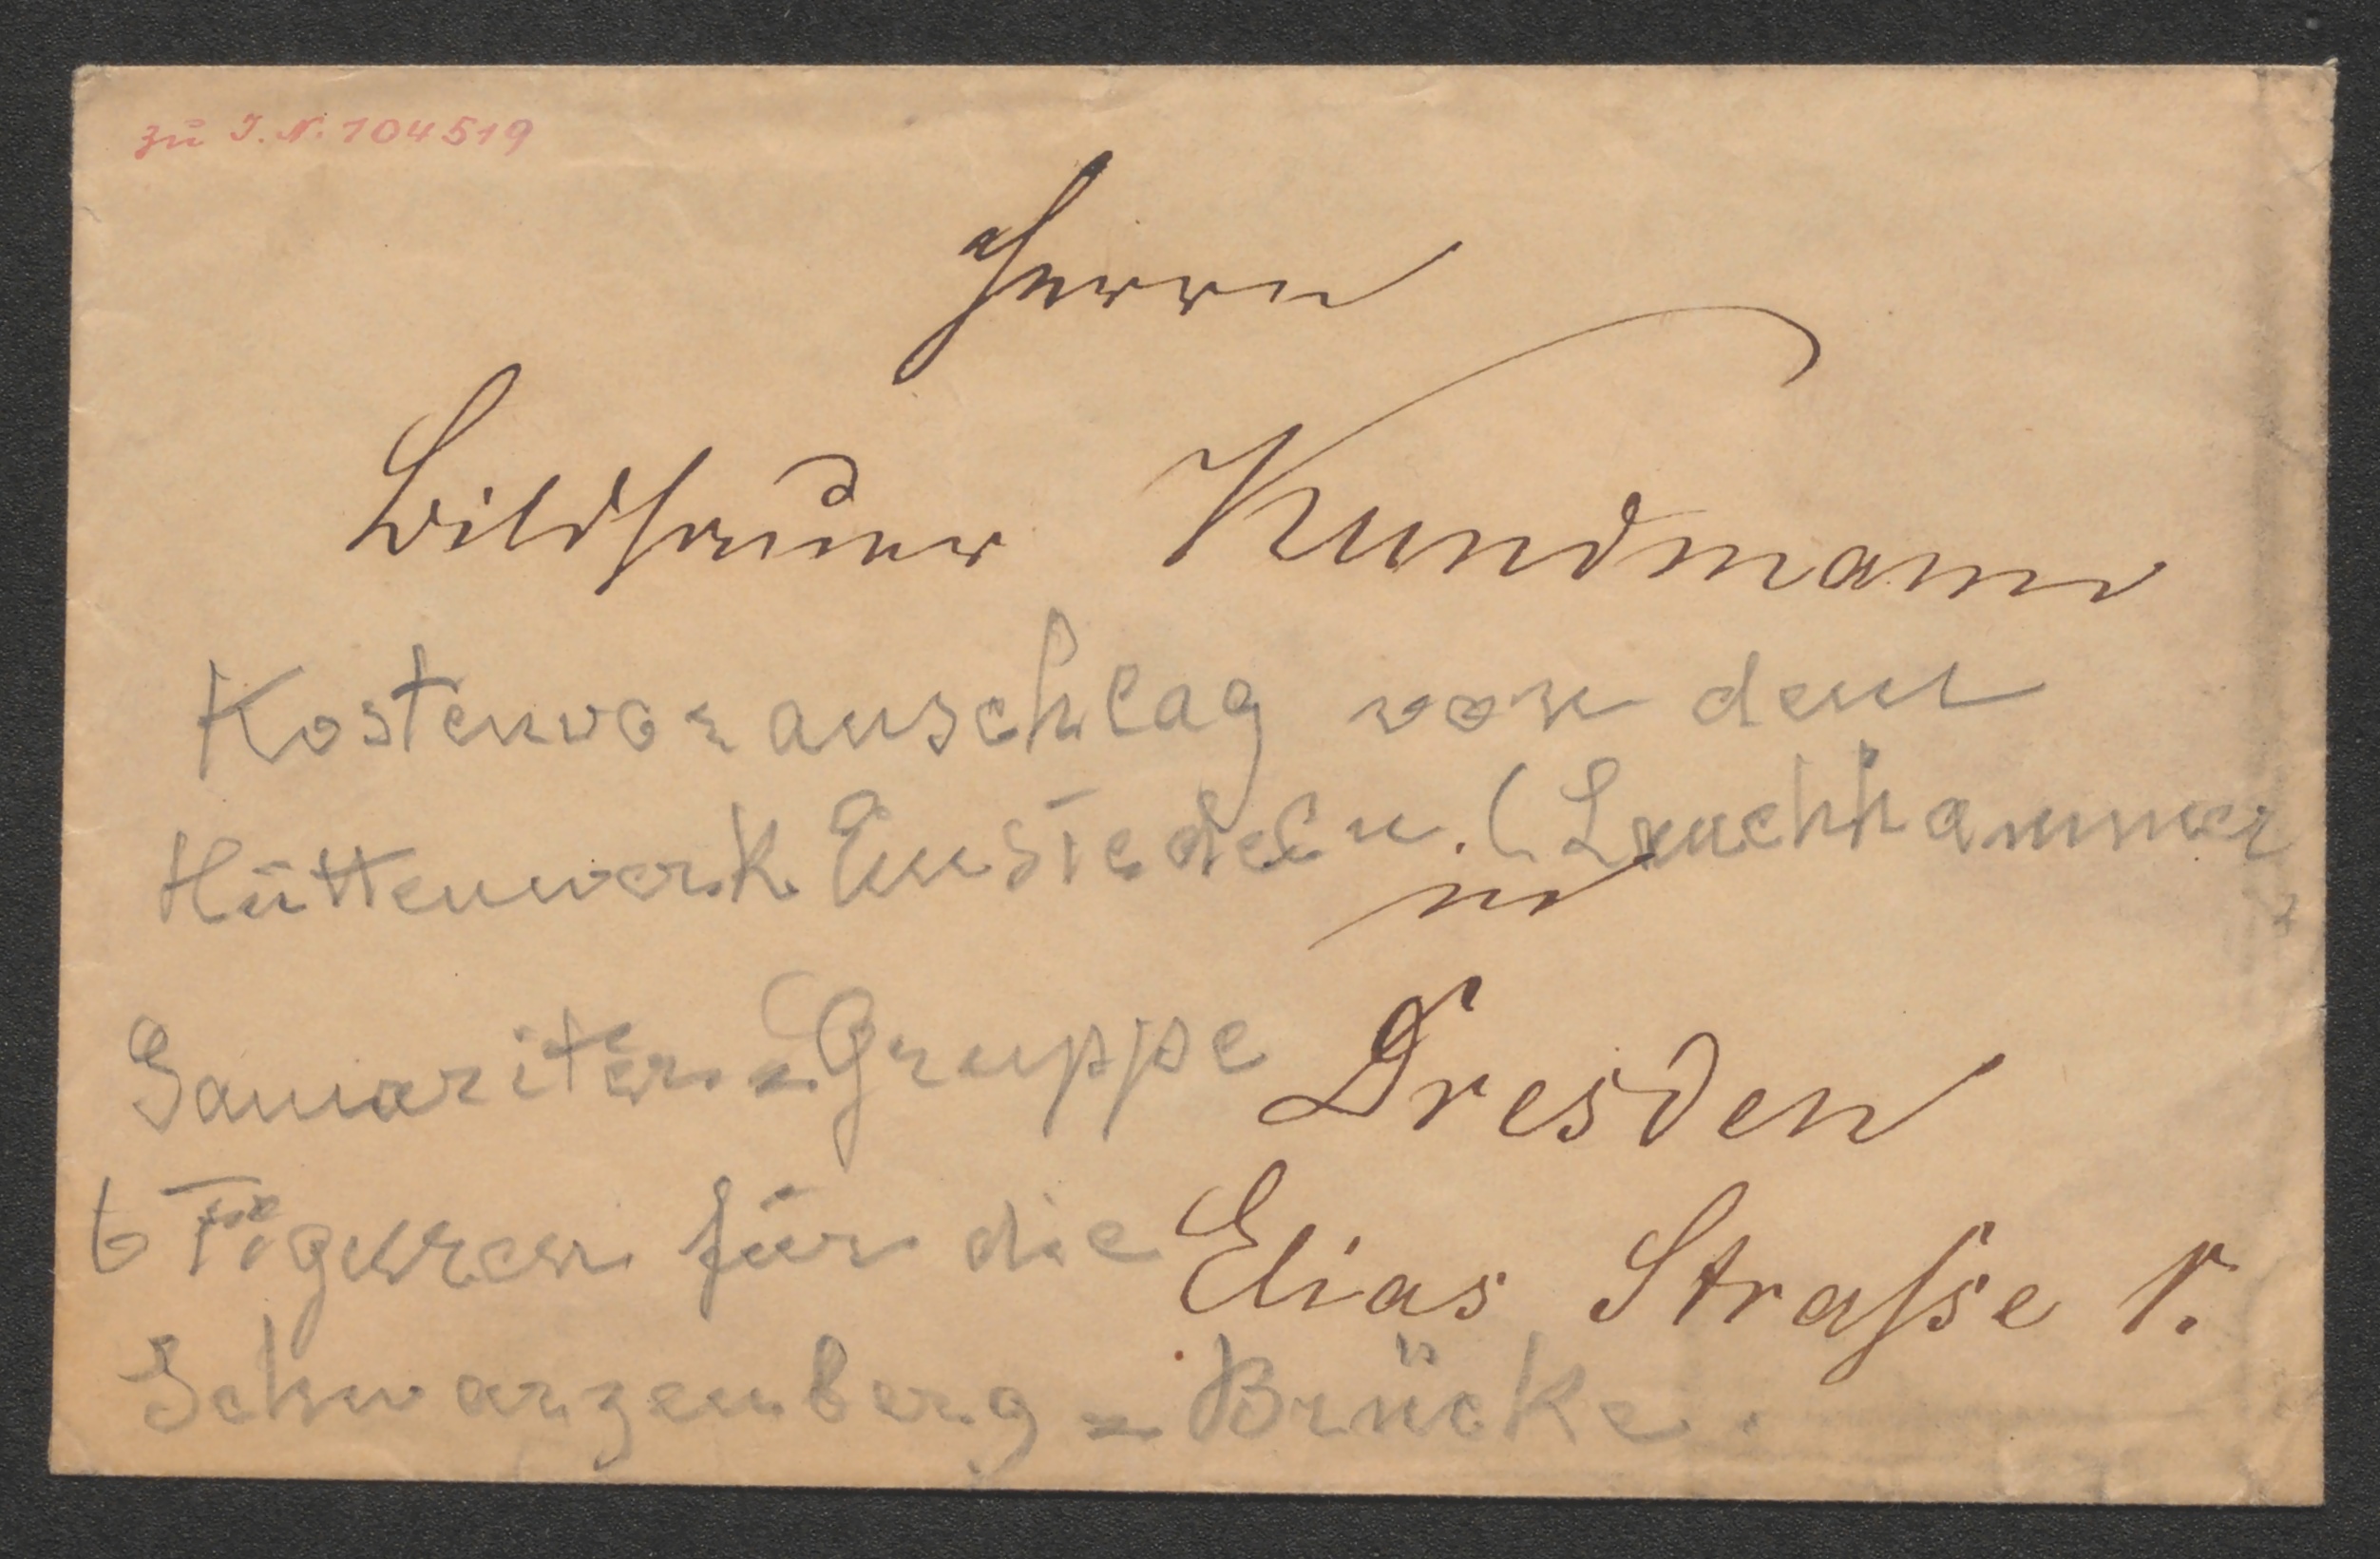 zu I. N. 104519
Herrn
Bildhauer Kundmann
Kostenvoranschlag von dem
Hüttenwerk Einsiedeln. (Lauchhammer
in
Samariter=Gruppe
Dresden
6 Figuren für die
Elias Strasse 1.
Schwarzenberg=Brücke.